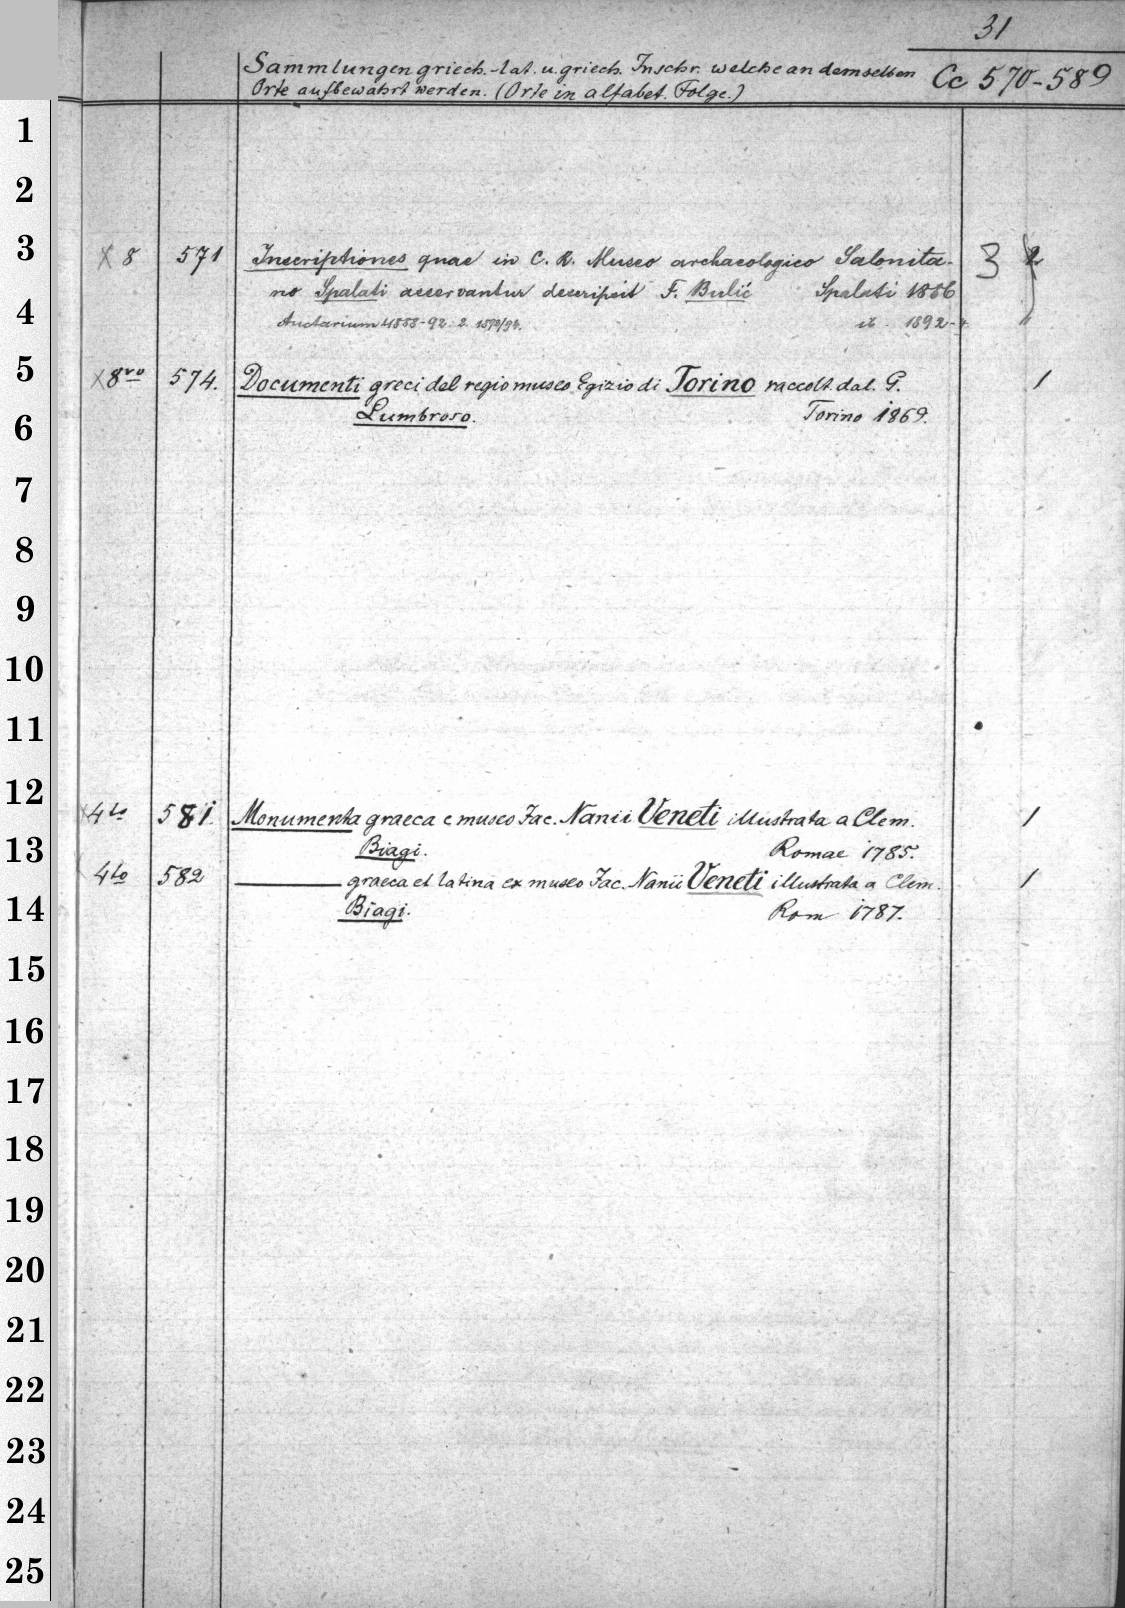 31
Sammlungen griech.-lat. u. griech. Inschr. welche an demselben Cc 570-589
Orte aufbewahrt werden. (Orte in alfabet. Folge.)
1
2
3 x 8 571 Inscriptiones quae in C. R. Museo archaeologico Salonita- 3 2
4 no Spalati asservantur descripsit F. Bulić Spalati 1886
Auctarium 1888-92. 2. it. 1892-4. "
5 x 8vo 574. Documenti greci del regio museo Egizio di Torino raccolt. dal. G. 1
6 Lumbroso. Torino 1869.
7
8
9
10
11
12 x 4to 581 Monumenta graeca e museo Jac. Nanii Veneti illustrata a Clem. 1
13 Biagi. Romae 1785.
4to 582 graeca et latina ex museo Jac. Nanii Veneti illustrata a Clem. 1
14 Biagi. Rom 1787.
15
16
17
18
19
20
21
22
23
24
25